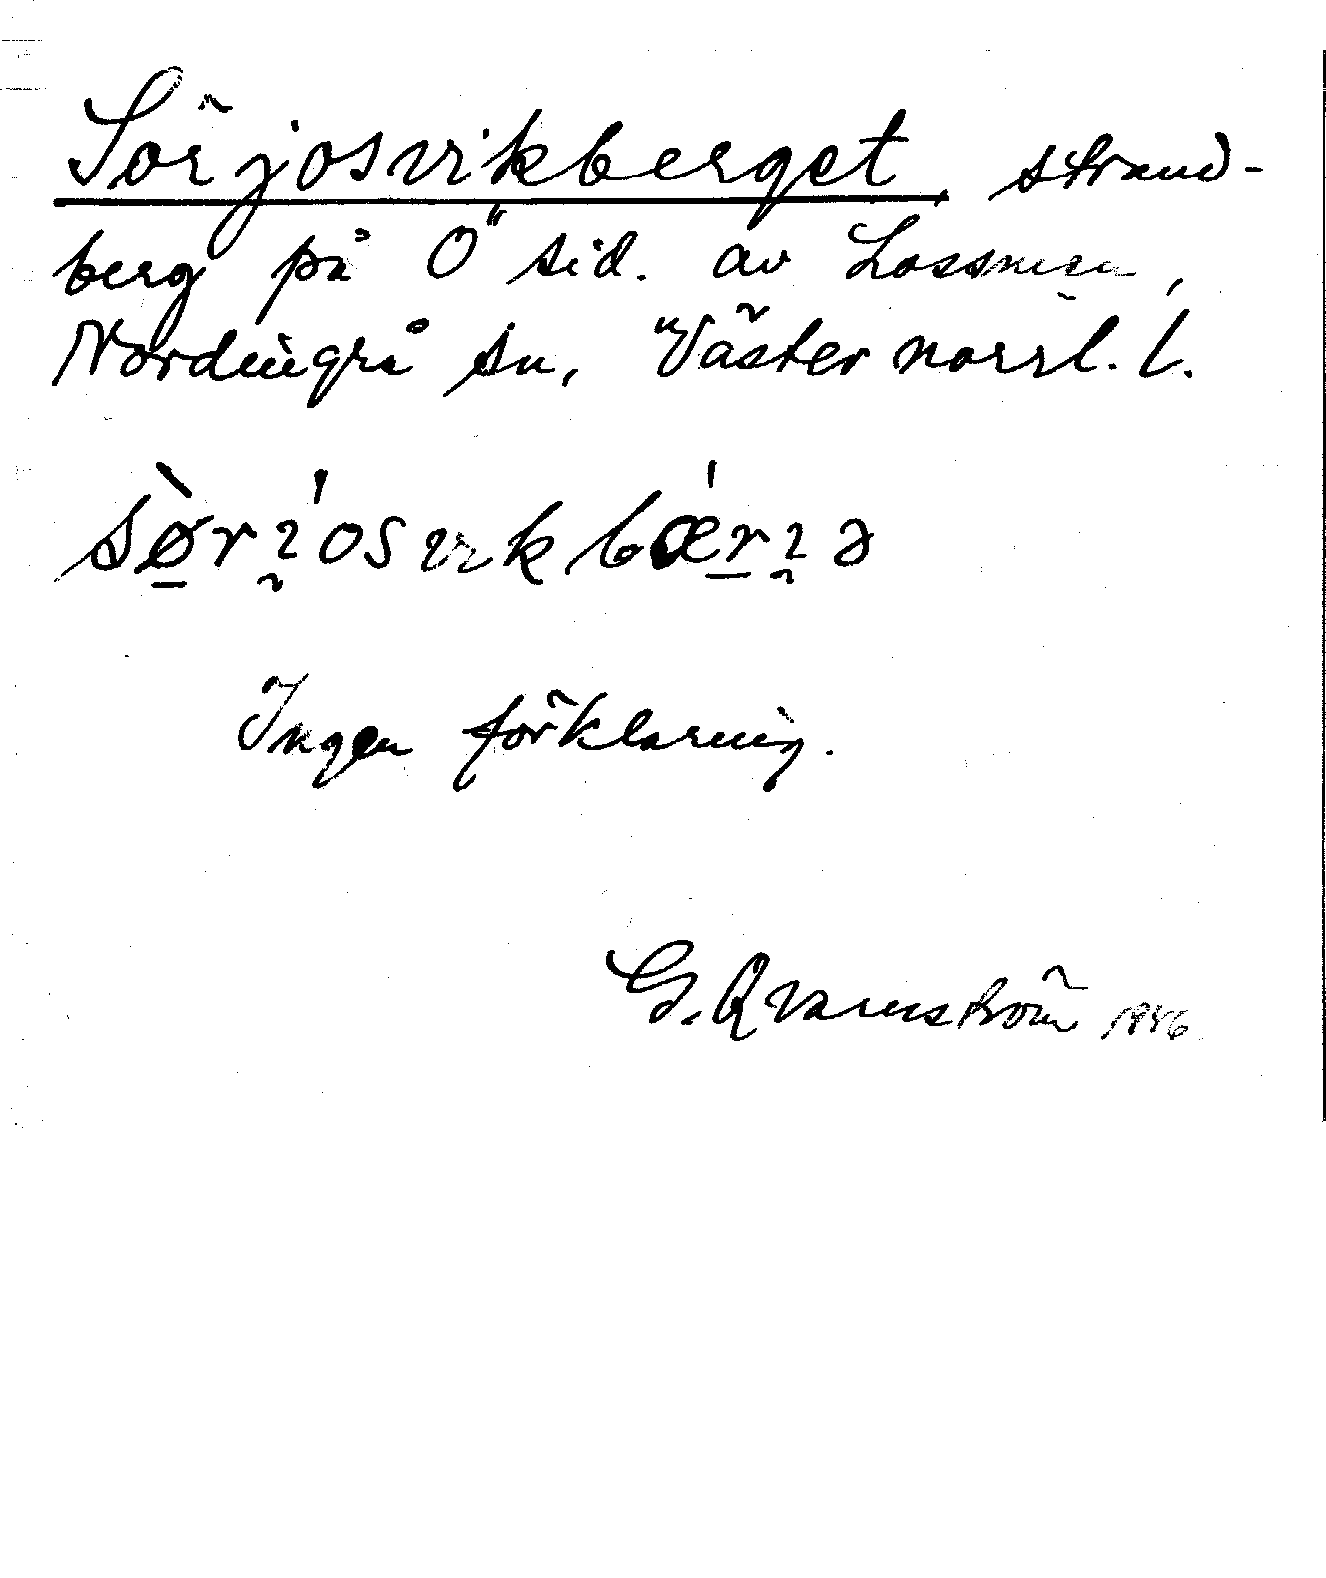 Sörjosvikberget, strand-
berg på Ö sid. av Lossmen,
Nordingrå sn, Västernorrl. l.
sø̱̀rʓ̰'osvikbǽṟʓ̰ə
Ingen förklaring.
G. Qvarnström 1946